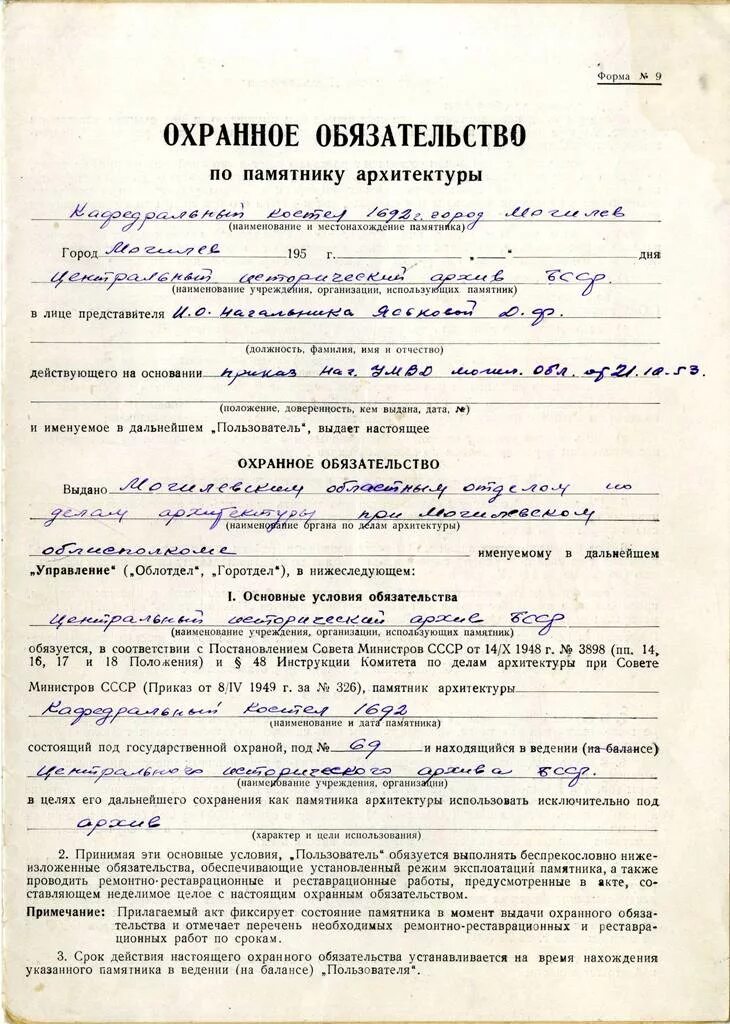 Форма № 9
ОХРАННОЕ ОБЯЗАТЕЛЬСТВО
по памятнику архитектуры
Кафедральный костел 1692 г. город Могилев
(наименование и местонахождение памятника)
Город Могилев 195 г. „ “ дня
Центральный исторический архив БССР.
(наименование учреждения, организации, использующих памятник)
в лице представителя И.О. начальника Яськовой Д. Ф.
(должность, фамилия, имя и отчество)
действующего на основании приказ нач. УМВД могил. обл. от 21.10.53.
(положение, доверенность, кем выдана, дата, №)
и именуемое в дальнейшем „Пользователь“, выдает настоящее
ОХРАННОЕ ОБЯЗАТЕЛЬСТВО
Выдано Могилевским областным отделом по
делам архитектуры при Могилевском
(наименование органа по делам архитектуры)
облисполкоме именуемому в дальнейшем
„Управление“ („Облотдел“, „Горотдел“), в нижеследующем:
I. Основные условия обязательства
Центральный исторический архив БССР
(наименование учреждения, организации, использующих памятник)
обязуется, в соответствии с Постановлением Совета Министров СССР от 14/X 1948 г. № 3898 (пп. 14,
16, 17 и 18 Положения) и § 48 Инструкции Комитета по делам архитектуры при Совете
Министров СССР (Приказ от 8/IV 1949 г. за № 326), памятник архитектуры
Кафедральный костел 1692
(наименование и дата памятника)
состоящий под государственной охраной, под № 69 и находящийся в ведении (на балансе)
Центрального исторического архива БССР.
(наименование учреждения, организации)
в целях его дальнейшего сохранения как памятника архитектуры использовать исключительно под
архив
(характер и цели использования)
2. Принимая эти основные условия, „Пользователь“ обязуется выполнять беспрекословно ниже-
изложенные обязательства, обеспечивающие установленный режим эксплоатаций памятника, а также
проводить ремонтно-реставрационные и реставрационные работы, предусмотренные в акте, со-
ставляющем неделимое целое с настоящим охранным обязательством.
Примечание: Прилагаемый акт фиксирует состояние памятника в момент выдачи охранного обяза-
тельства и отмечает перечень необходимых ремонтно-реставрационных и реставра-
ционных работ по срокам.
3. Срок действия настоящего охранного обязательства устанавливается на время нахождения
указанного памятника в ведении (на балансе) „Пользователя“.